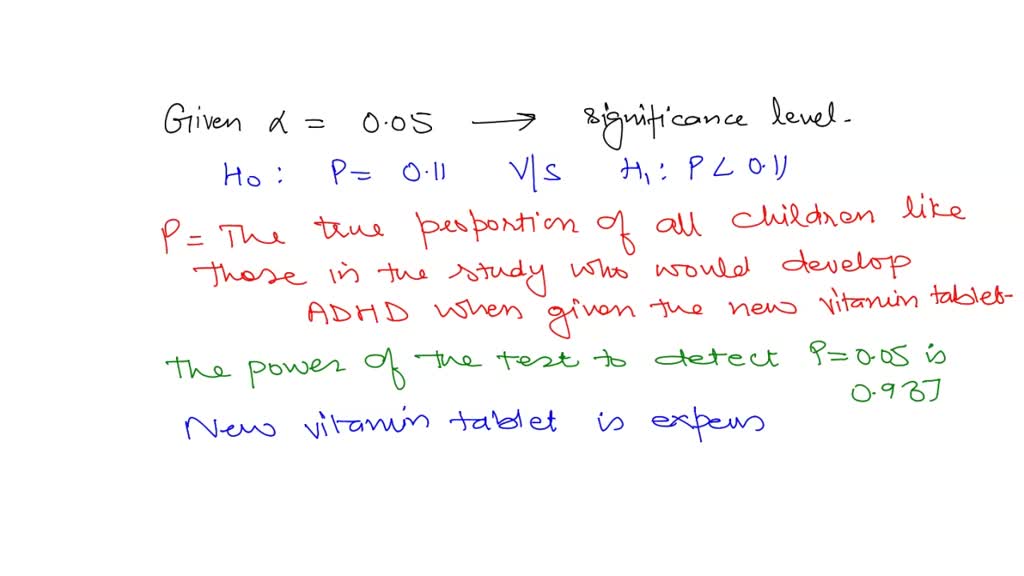 Given α = 0.05 → significance level.
H0 : P = 0.11 V/S H1 : P < 0.11
P = The true proportion of all children like
those in the study who would develop
ADHD when given the new vitamin tablet.
The power of the test to detect P = 0.05 is
0.937
New vitamin tablet is expens